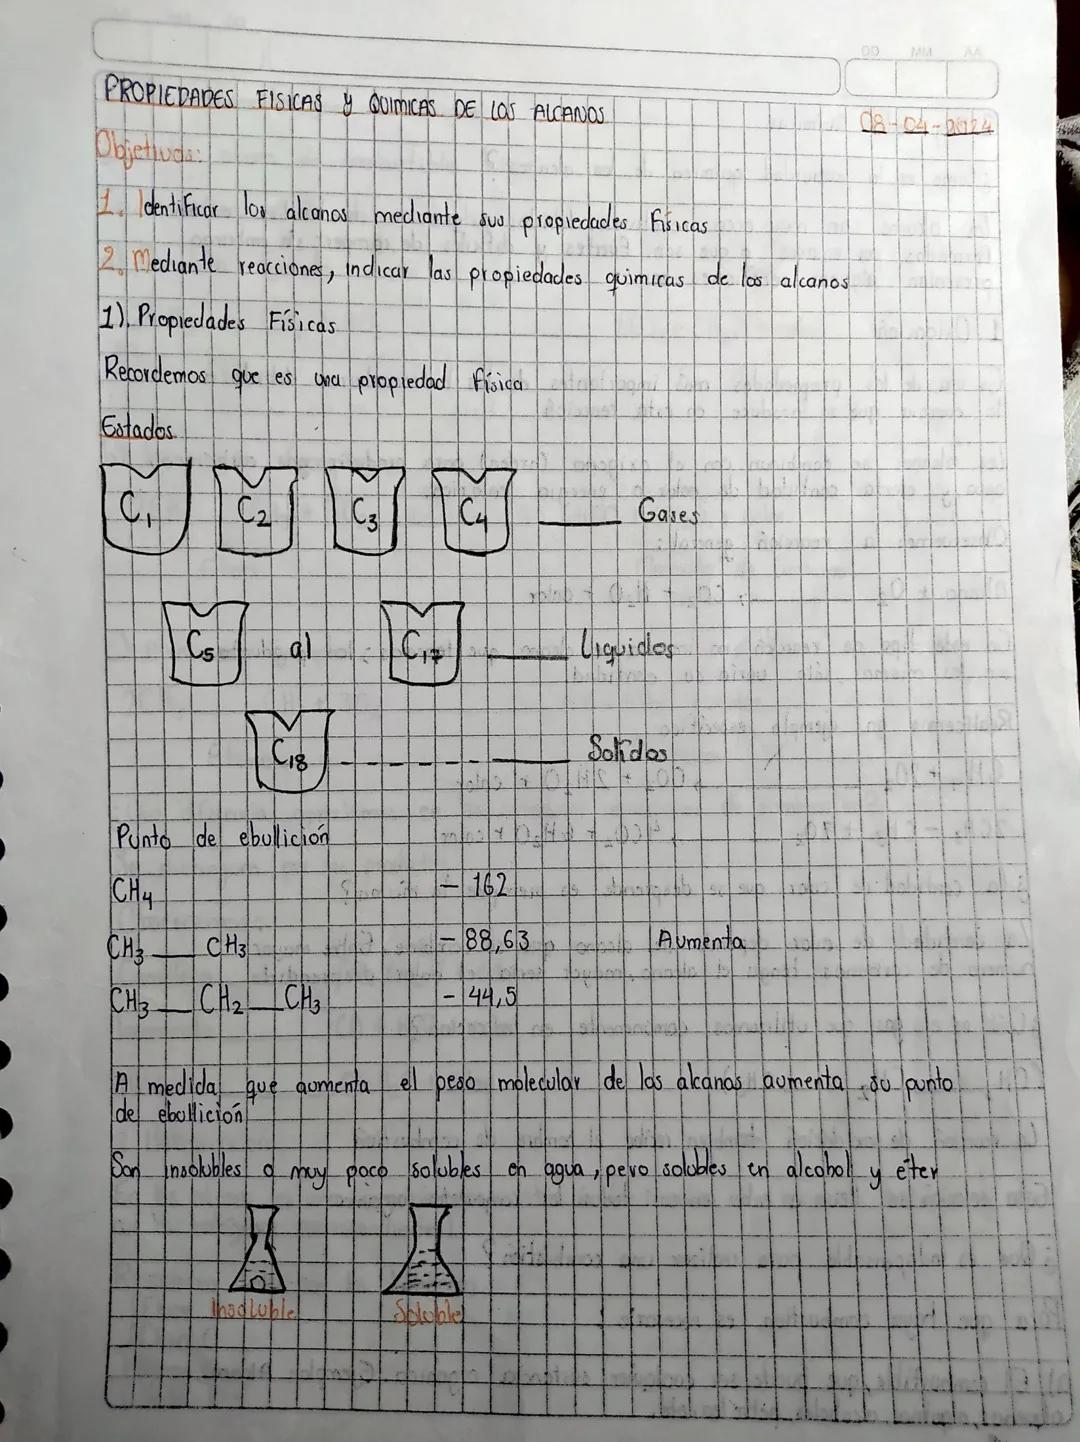 DD MM AA
PROPIEDADES FISICAS Y QUIMICAS DE LOS ALCANOS
08-04-2024
Objetivos:
1. Identificar los alcanos mediante sus propiedades físicas
2. Mediante reacciones, indicar las propiedades quimicas de los alcanos
1). Propiedades Físicas
Recordemos que es una propiedad física
Estados
C₁ C₂ C₃ C₄ ____ Gases
C₅ al C₁₇ ____ Liquidos
C₁₈ _ _ _ _ _ ____ Solidos
Punto de ebullición
CH₄ - 162
CH₃ __ CH₃ - 88,63 Aumenta
CH₃ __ CH₂ __ CH₃ - 44,5
A medida que aumenta el peso molecular de los alcanos aumenta su punto
de ebullición
Son insolubles o muy poco solubles en agua, pero solubles en alcohol y éter
Insoluble Soluble